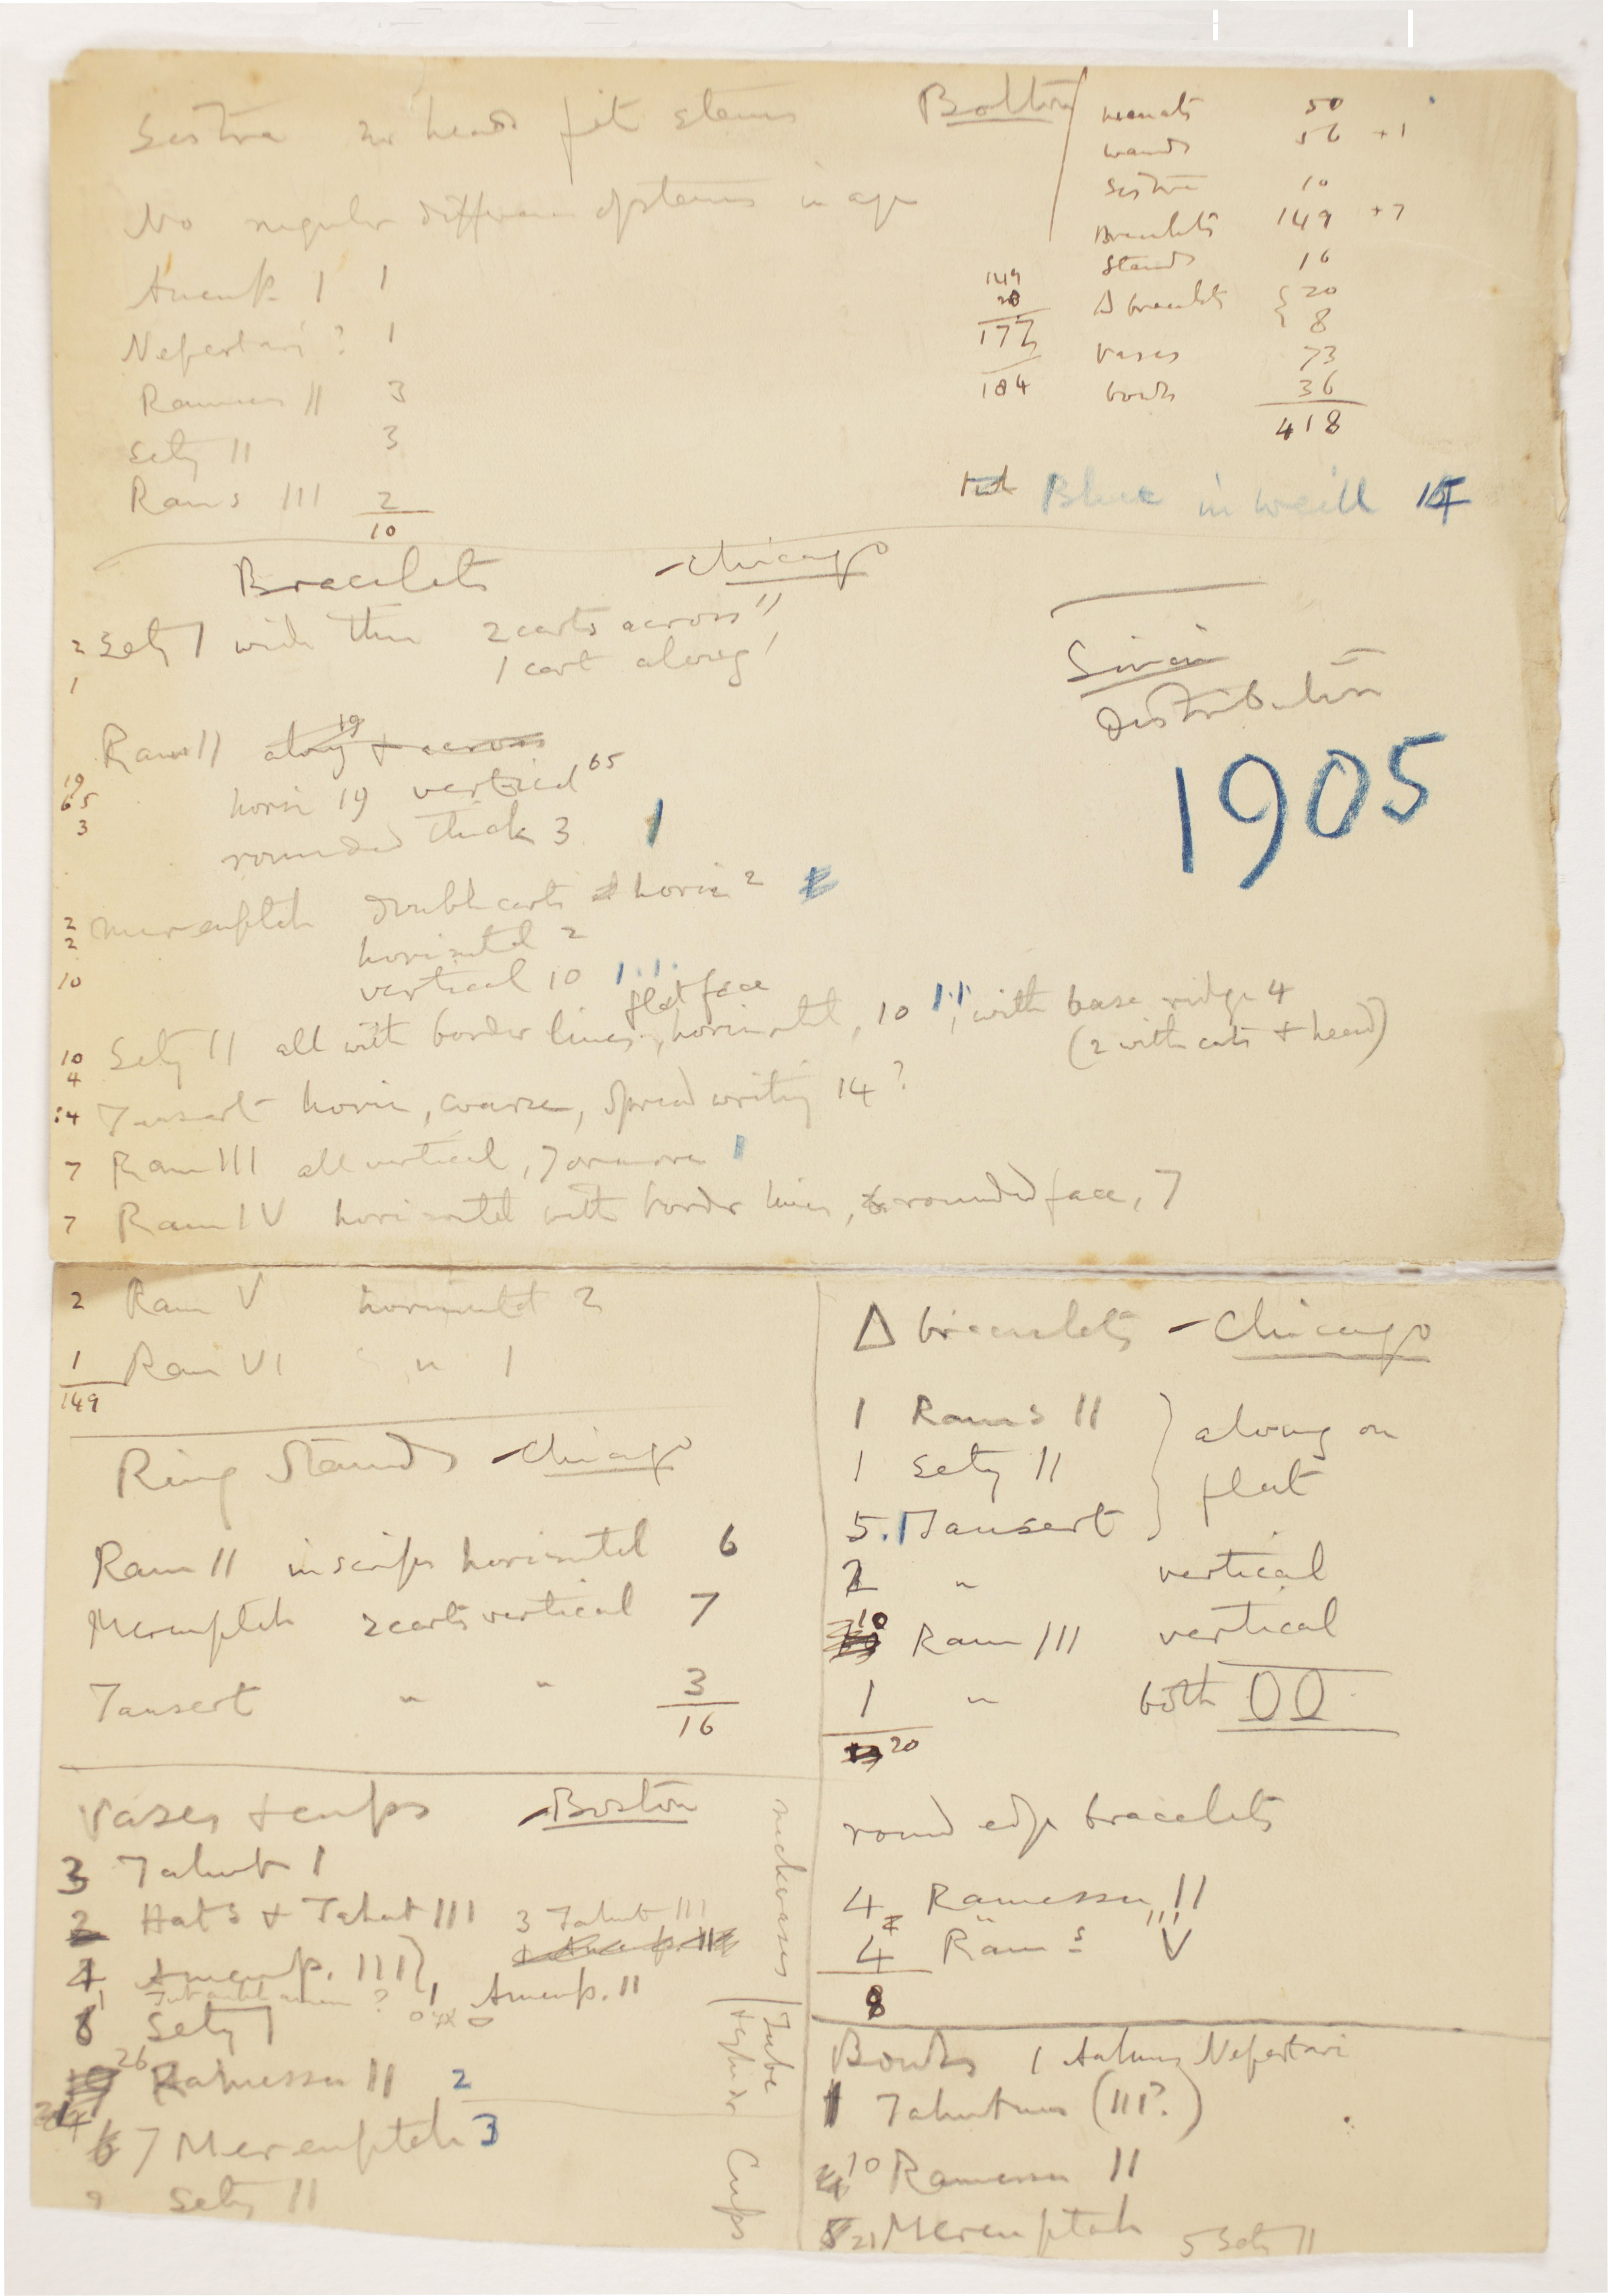 Sistra no heads fit stems
No regular difference of stems in age
Amenhp. I 1
Nefertari ? 1
Ramses II 3
Sety II 3
Rams III 2
10
Bolton
menats 50
wands 56 +1
Sistra 10
Bracelets 149 +7
Stands 16
Δ bracelets { 20
{ 8
vases 73
bowls 36
418
149
28
177
184
Blue in weill
Bracelets - Chicago
2 Sety I wide thin 2 carts across II
1 1 cart along I
Rams II along 19 & across
19 horiz 19 vertical 65
65
3 rounded thick 3 1
2 Merenptah double carts horiz 2
2 horizontal 2
10 vertical 10
flat face
10 Sety II all with border lines, horizontal, 10, with base ridge 4
4 (2 with cats & head)
14 Tausert horiz, coarse, spread writing 14 ?
7 Ram III all vertical, 7 or more 1
7 Ram IV horizontal with border lines, rounded face, 7
Sinai
Distribution
1905
2 Ram V horizontal 2
1 Ram VI " 1
149
Ring Stands - Chicago
Ram II inscrips horizontal 6
Merenptah 2 carts vertical 7
Tausert " " 3
16
Δ bracelets - Chicago
1 Rams II } along on
1 Sety II } flat
5. Tausert }
2 " vertical
10 Ram III vertical
1 " both
20
round edge bracelets
4 Ramessu III
4 Rams V
8
Vases & cups - Boston
3 Tahut I
2 Hats & Tahut III 3 Tahut III
4 Amenhp. III }
1 Tutankhamen ? 1 Amenhp. II
8 Sety I
26 Ramessu II 2
7 Merenptah 3
Sety II
Tube
Cups
Bowls 1 Aahmes Nefertari
1 Tahutmes (III?)
10 Ramessu II
21 Merenptah 5 Sety II